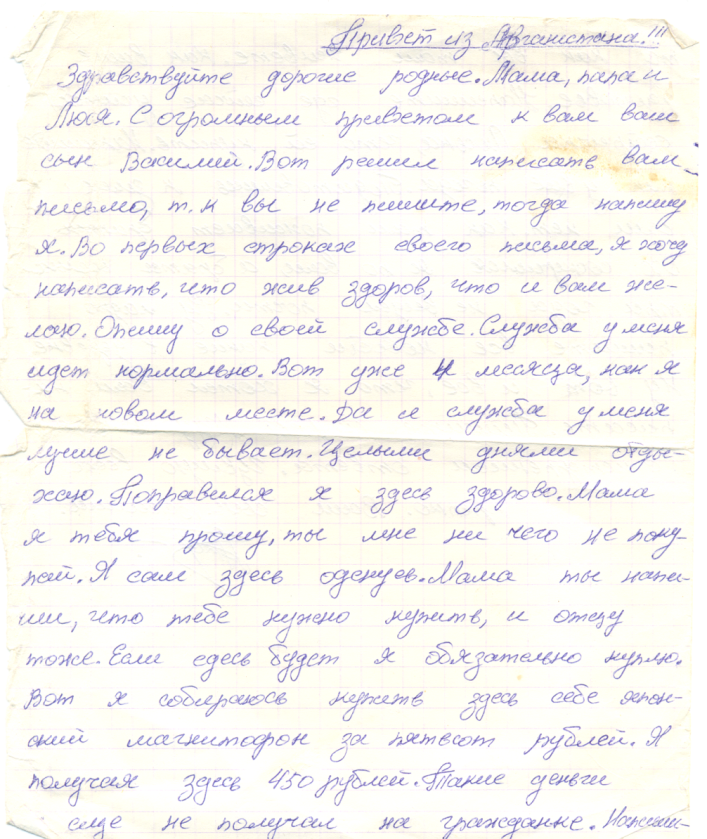 Привет из Афганистана!!!
Здравствуйте дорогие родные. Мама, папа и
Люся. С огромным приветом к вам ваш
сын Василий. Вот решил написать вам
письмо, т.к вы не пишите, тогда напишу
я. Во первых строках своего письма, я хочу
написать, что жив здоров, что и вам же-
лаю. Опишу о своей службе. Служба у меня
идет нормально. Вот уже 4 месяца, как я
на новом месте. Да и служба у меня
лучше не бывает. Целыми днями отды-
хаю. Поправился я здесь здорово. Мама
я тебя прошу, ты мне ни чего не поку-
пай. Я сам здесь оденусь. Мама ты напи-
ши, что тебе нужно купить, и отцу
тоже. Если здесь будет я обязательно куплю.
Вот я собираюсь купить здесь себе япон-
ский магнитофон за пятьсот рублей. Я
получая здесь 450 рублей. Такие деньги
еще не получал на гражданке.